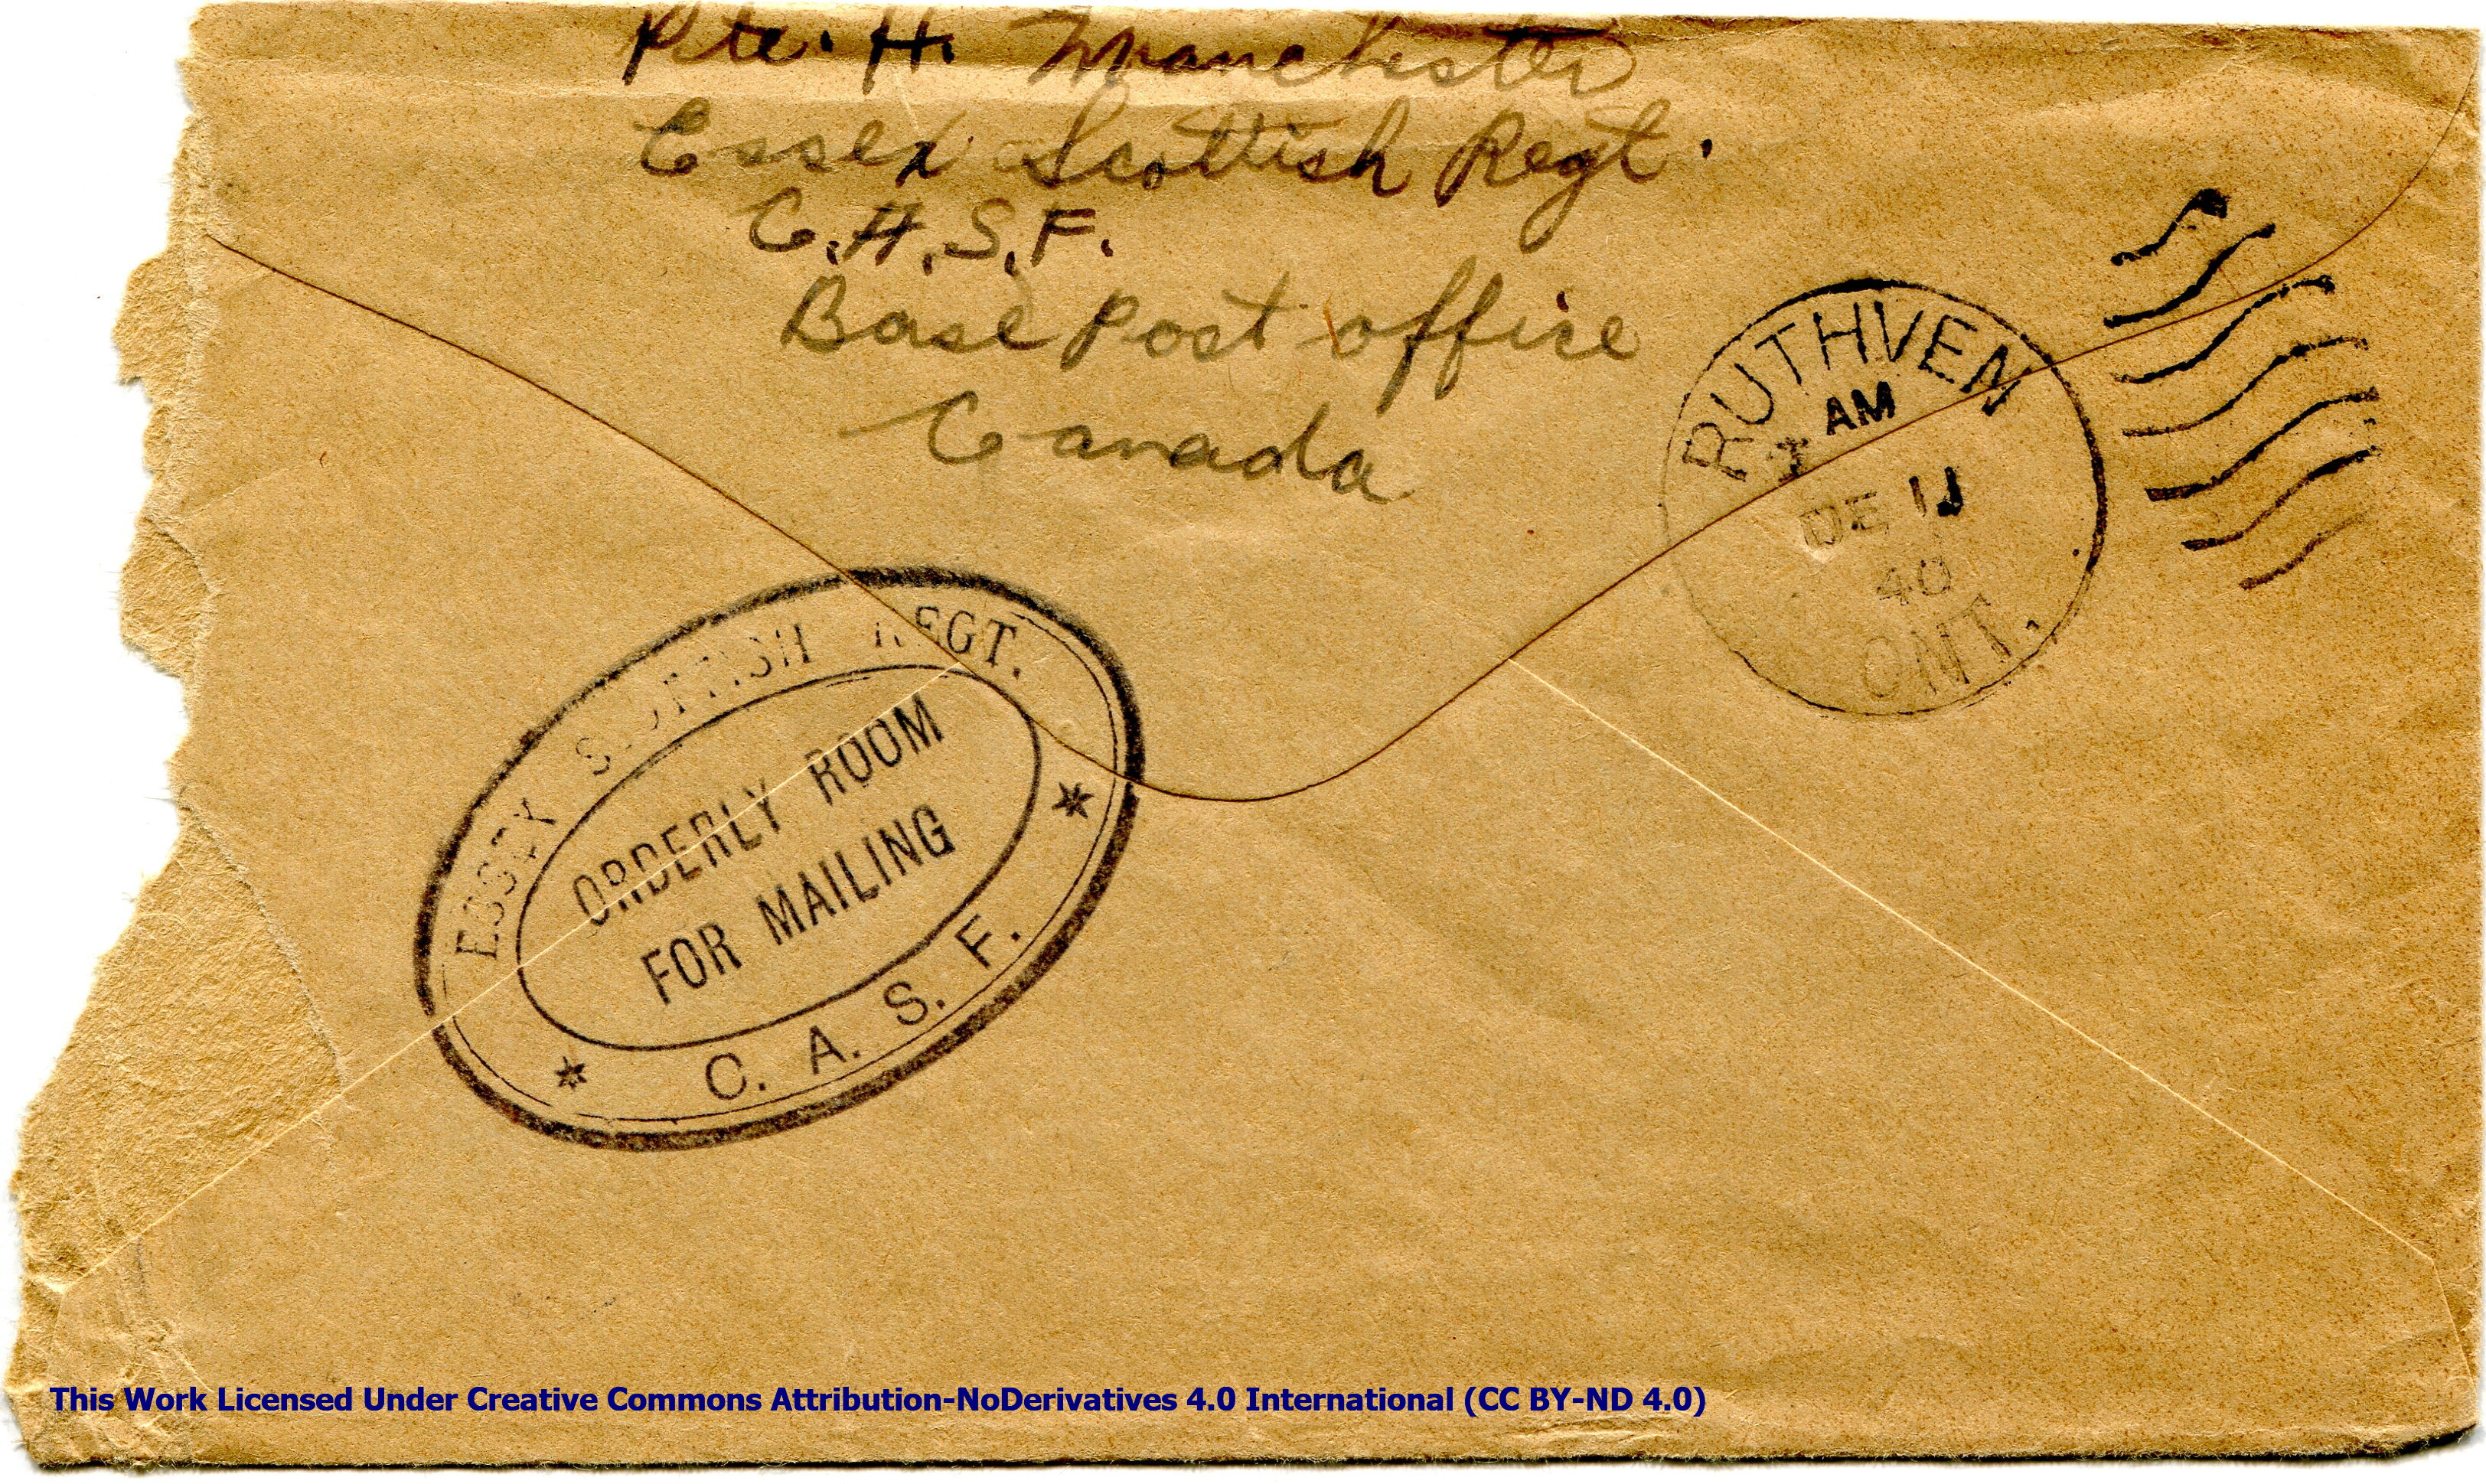 Pte. H. Manchester
Essex Scottish Regt.
C.A.S.F.
Base Post office
Canada
RUTHVEN
AM
DE 11
40
ONT.
ESSEX SCOTTISH REGT.
ORDERLY ROOM
FOR MAILING
* C. A. S. F. *
This Work Licensed Under Creative Commons Attribution-NoDerivatives 4.0 International (CC BY-ND 4.0)